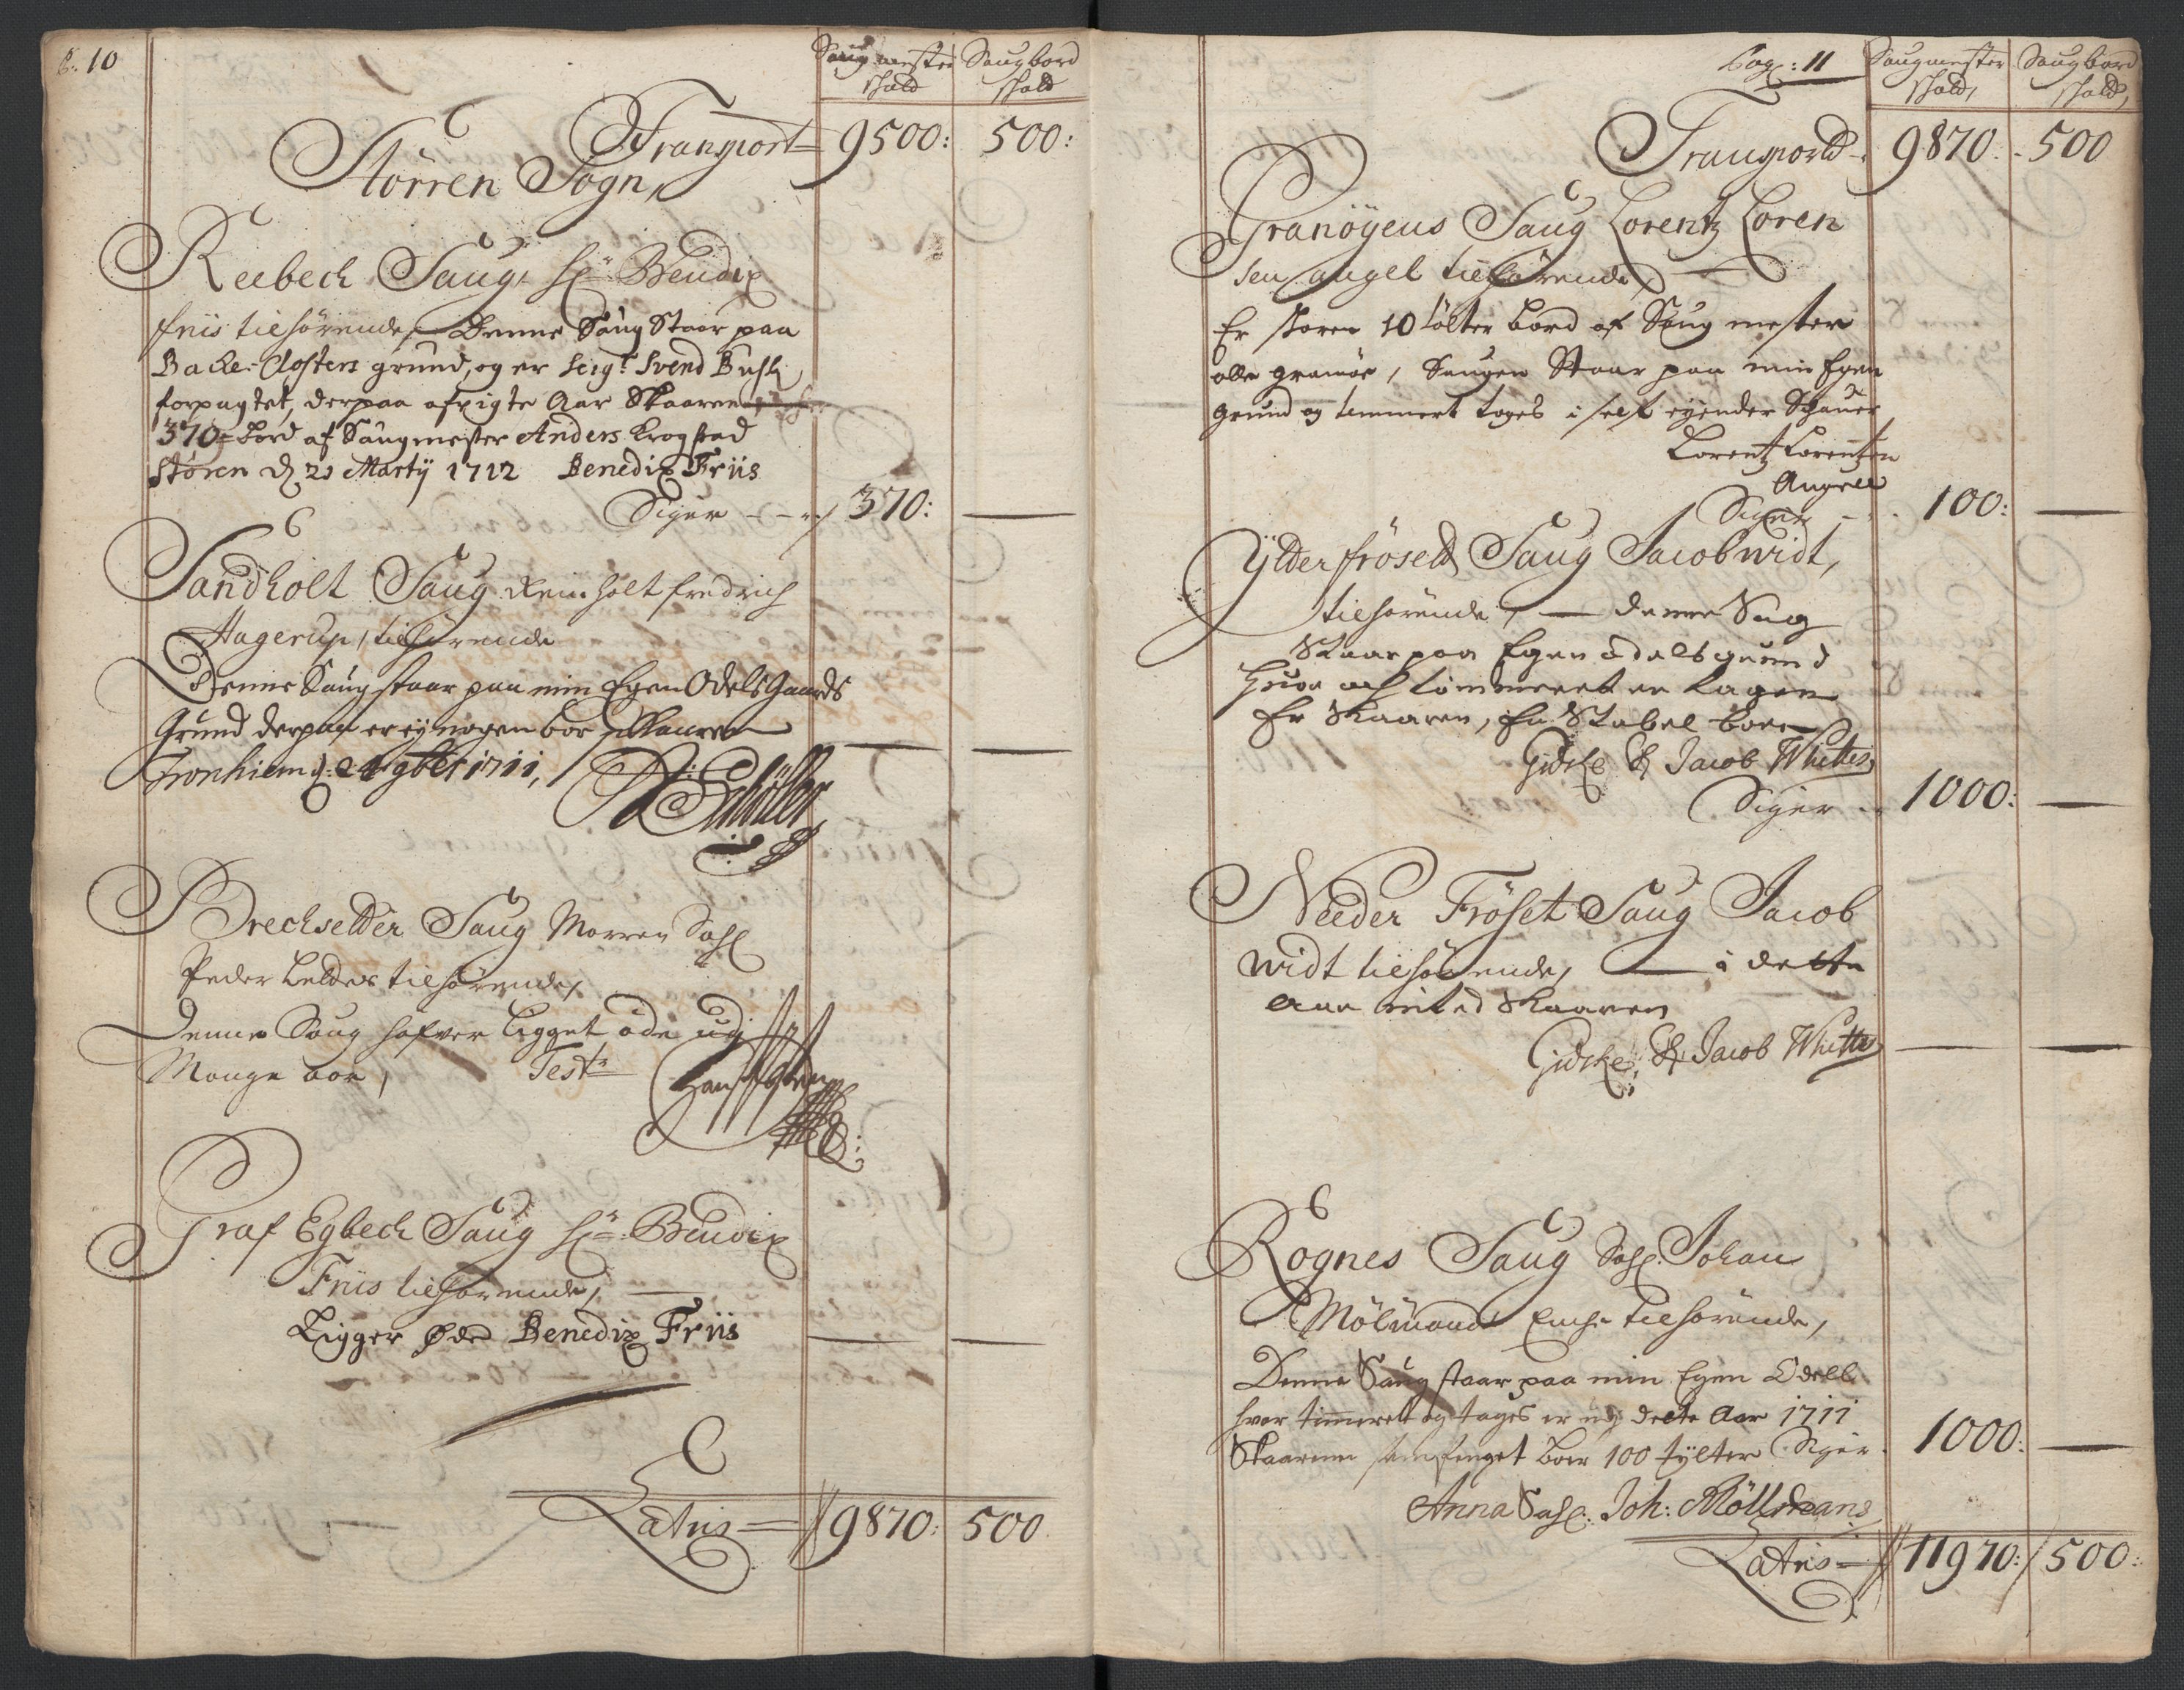 P: 10
Saug mester
skatt
Saugbord
skatt
Transport 9500: 500:
Störren Sogn,
Reebech Saug Hr. Bendix
friis tilhørende, Denne Saug Staar paa
Backe-Closters grund, og er Seigr. Svend Busk
forpagtet, derpaa afvigte Aar Skaaren
370 bord af Saugmester Anders Krogstad
Støren d. 21 Martij 1712 Benedix Friis
Siger 370: —
Sandholt Saug Reinholt fredrich
Hagerup, tilhørende
Denne Saug staar paa min Egen Odels Gaards
Grund derpaa er ej nogen bor Skaaren
Tronhiem d: 21 9br 1711,
Schöller
Drechseller Saug
Peder tilhørende,
Denne Saug hafver Ligget øde udj
Mange aar, Test
Graf Egbech Saug Hr. Bendix
Friis tilhørende,
Ligger Øde Benedix Friis
Latus 9870: 500.
Pag: 11
Saugmester
skatt,
Saugbord
skatt,
Transport 9870. 500
Granöyens Saug Lorentz Loren
sen angel tilhørende
Er skoren 10 tolter bord af Saug mester
olle gramoe, Saugen Staar paa min Egen
grund og temmert toges i self eyender
Lorentz Lorentzen
Angell
Siger 100: —
Ytter fröseth Saug Jacob widt,
tilhørende, — denne Sag
Staar paa Egen odels grund
Huor och tømmeret er tagen
Er Skaaren, En Stabel boer
Gidske Sl Jacob Whittes
Siger 1000: —
Needer Fröset Saug Jacob
widt tilhørende, — i dette
aar intet Skaaren
Gidske Sl Jacob Whittes
Rognes Saug Sahl. Johan
Mölmands Enche tilhørende,
Denne Saug staar paa min Egen Odell
hvor timmeret og tages er udj dette Aar 1711
Skaaren boer 100 tylter Siger 1000: —
Anna Sahl. Joh: Möllmans
Latus 11970: 500: